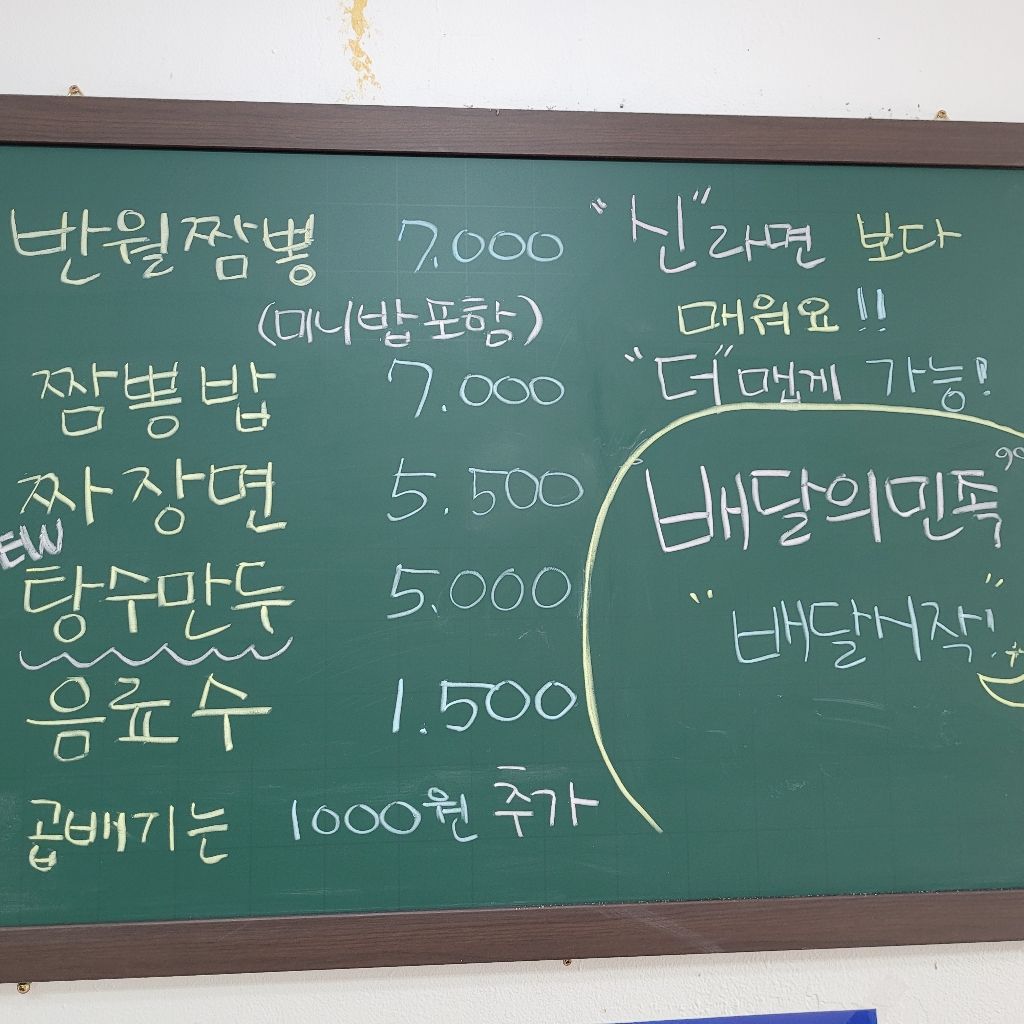 반월짬뽕 7.000
(미니밥포함)
짬뽕밥 7.000
짜장면 5.500
EW
탕수만두 5.000
음료수 1.500
곱배기는 1000원 추가
"신"라면 보다
매워요!!
"더"맵게 가능!
배달의민족
"배달시작!"